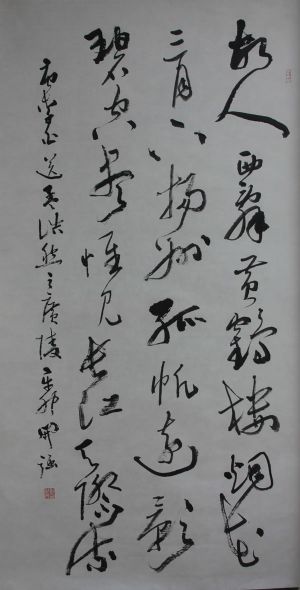 故人西辭黄鶴樓烟花
三月下揚州孤帆遠影
碧空盡惟見長江天際流
李白送孟浩然之廣陵